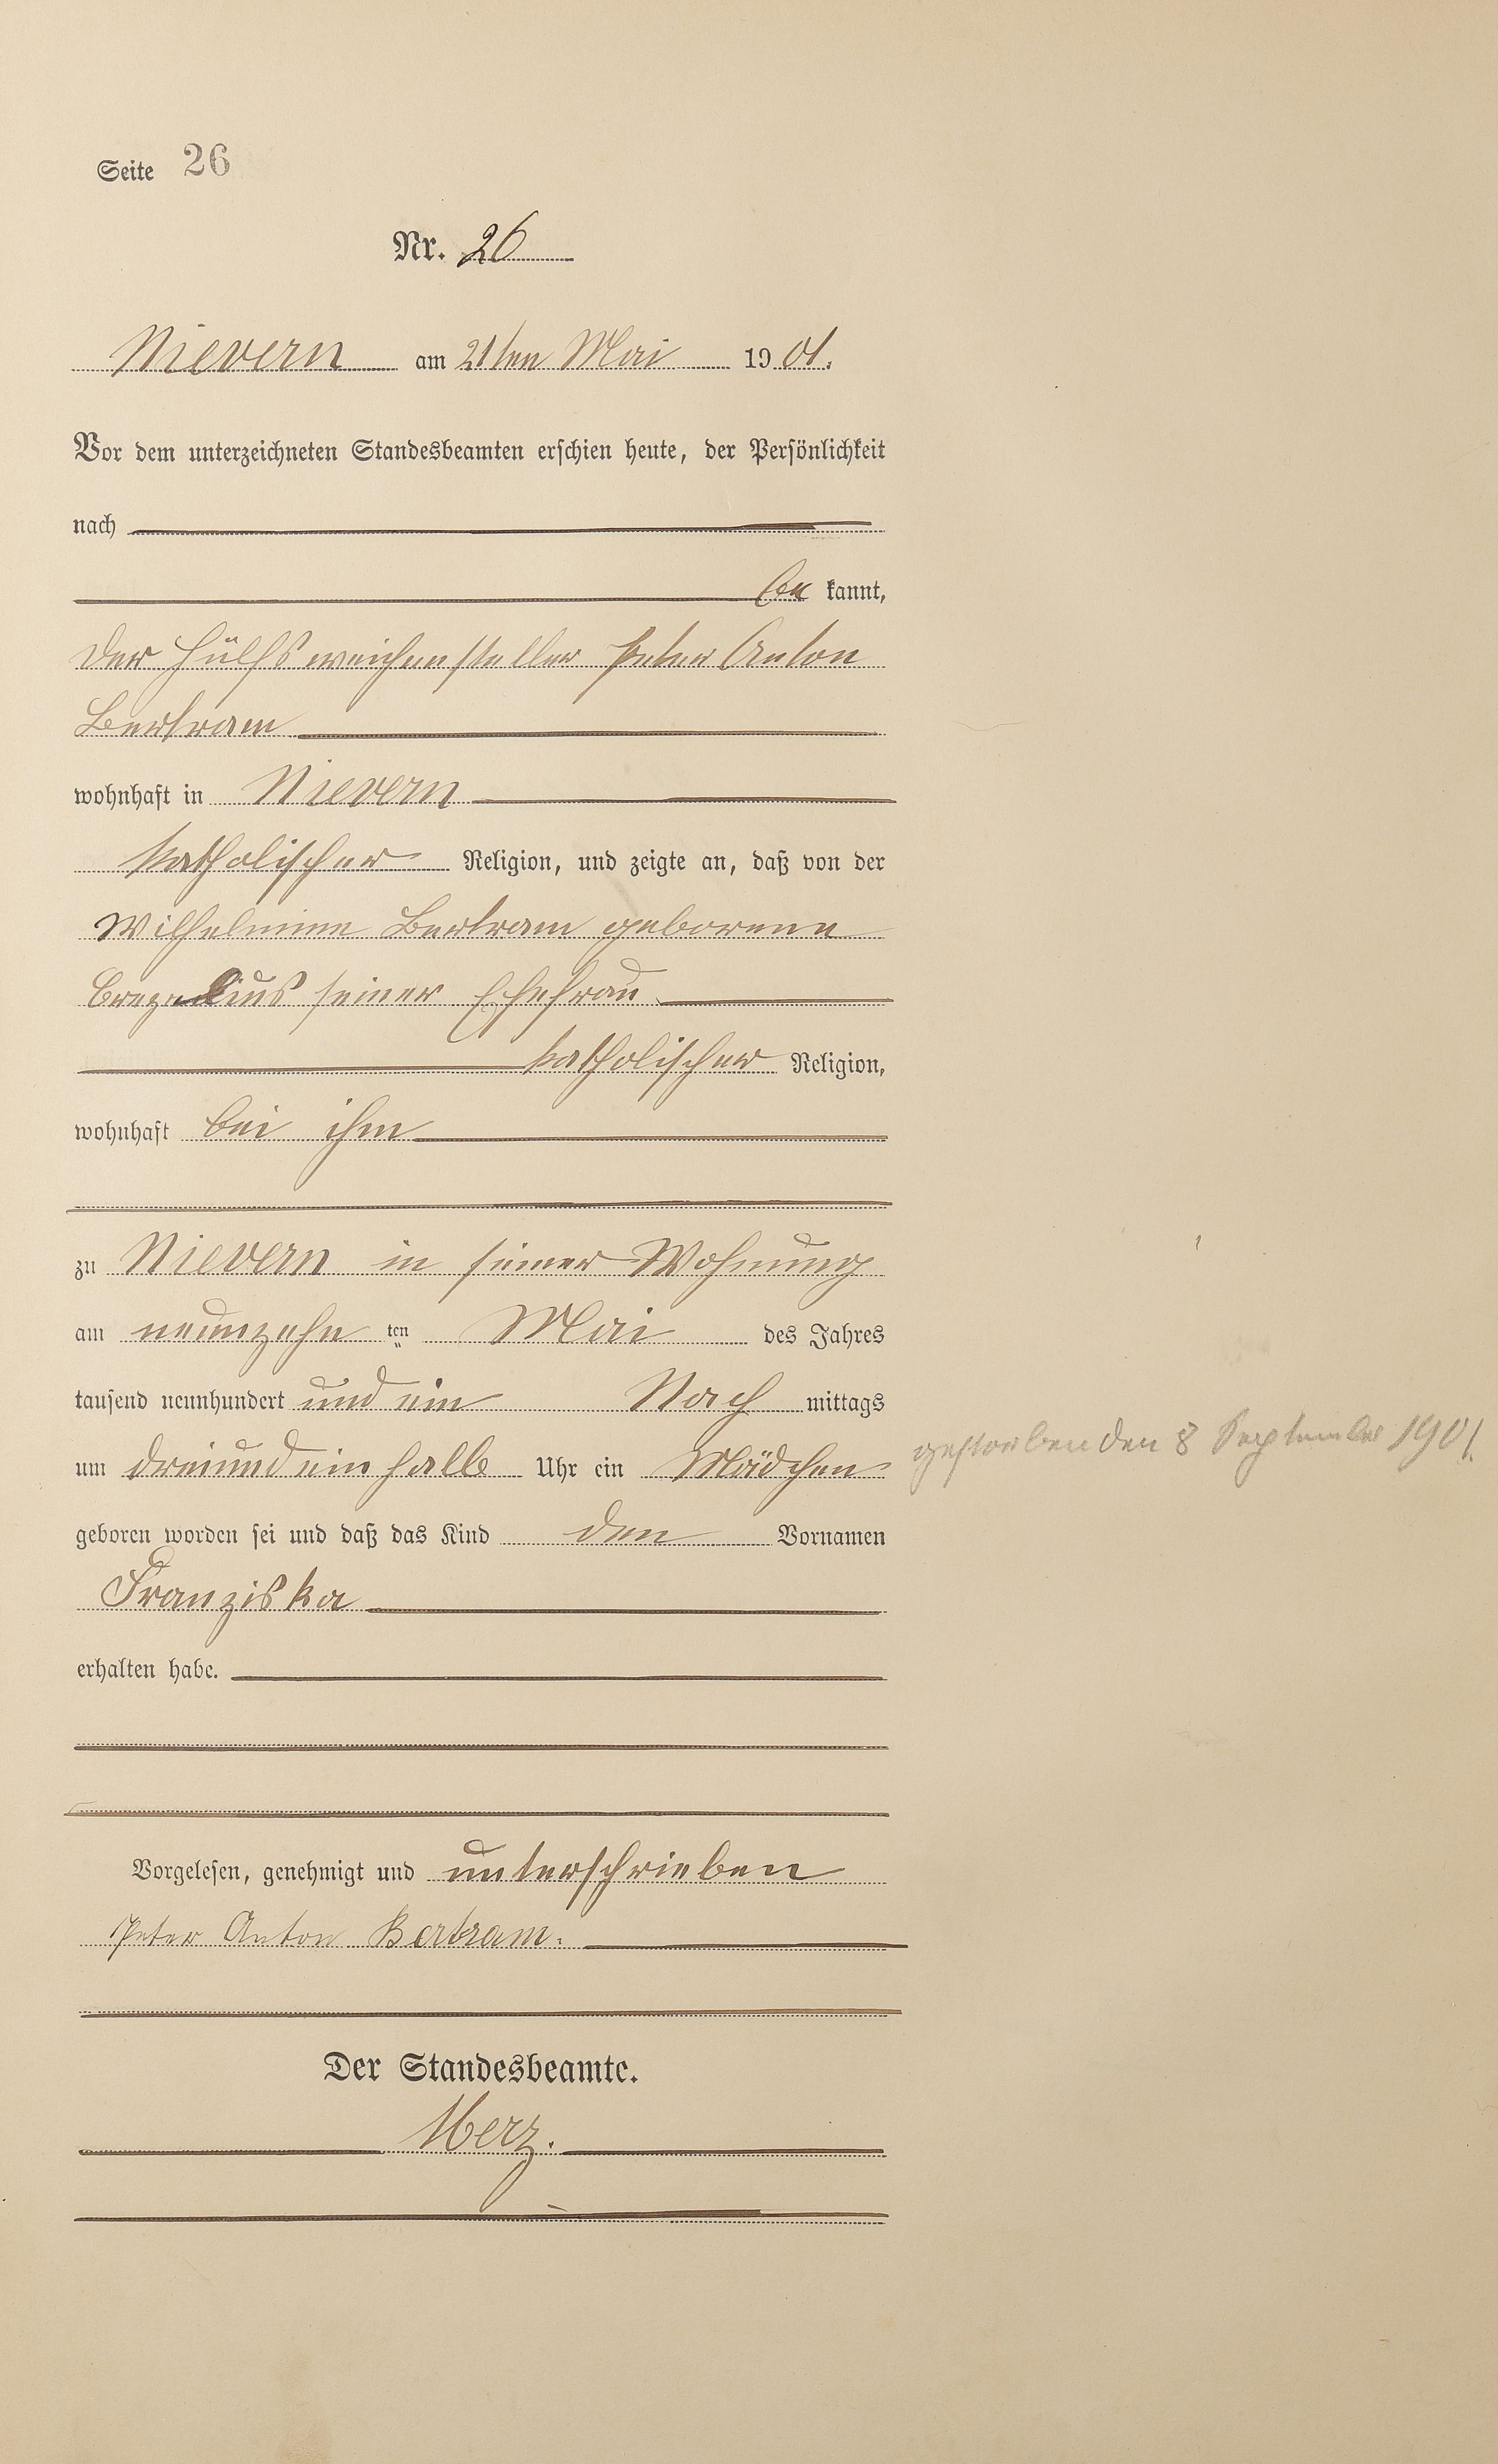 Seite 26
Nr. 26
Nievern am 21ten Mai 1901.
Vor dem unterzeichneten Standesbeamten erschien heute, der Persönlichkeit
nach
be kannt,
der Hülfsweichensteller Peter Anton
Bertram
wohnhaft in Nievern
katholischer Religion, und zeigte an, daß von der
Wilhelmine Bertram geborene
seiner Ehefrau
katholischer Religion,
wohnhaft bei ihm
zu Nievern in seiner Wohnung
am neunzehn ten Mai des Jahres
tausend neunhundert und ein Nach mittags
um dreiundeinhalb Uhr ein Mädchen
gestorben den 8 September 1901.
geboren worden sei und daß das Kind den Vornamen
Franziska
erhalten habe.
Vorgelesen, genehmigt und unterschrieben
Peter Anton Bertram.
Der Standesbeamte.
Merz.